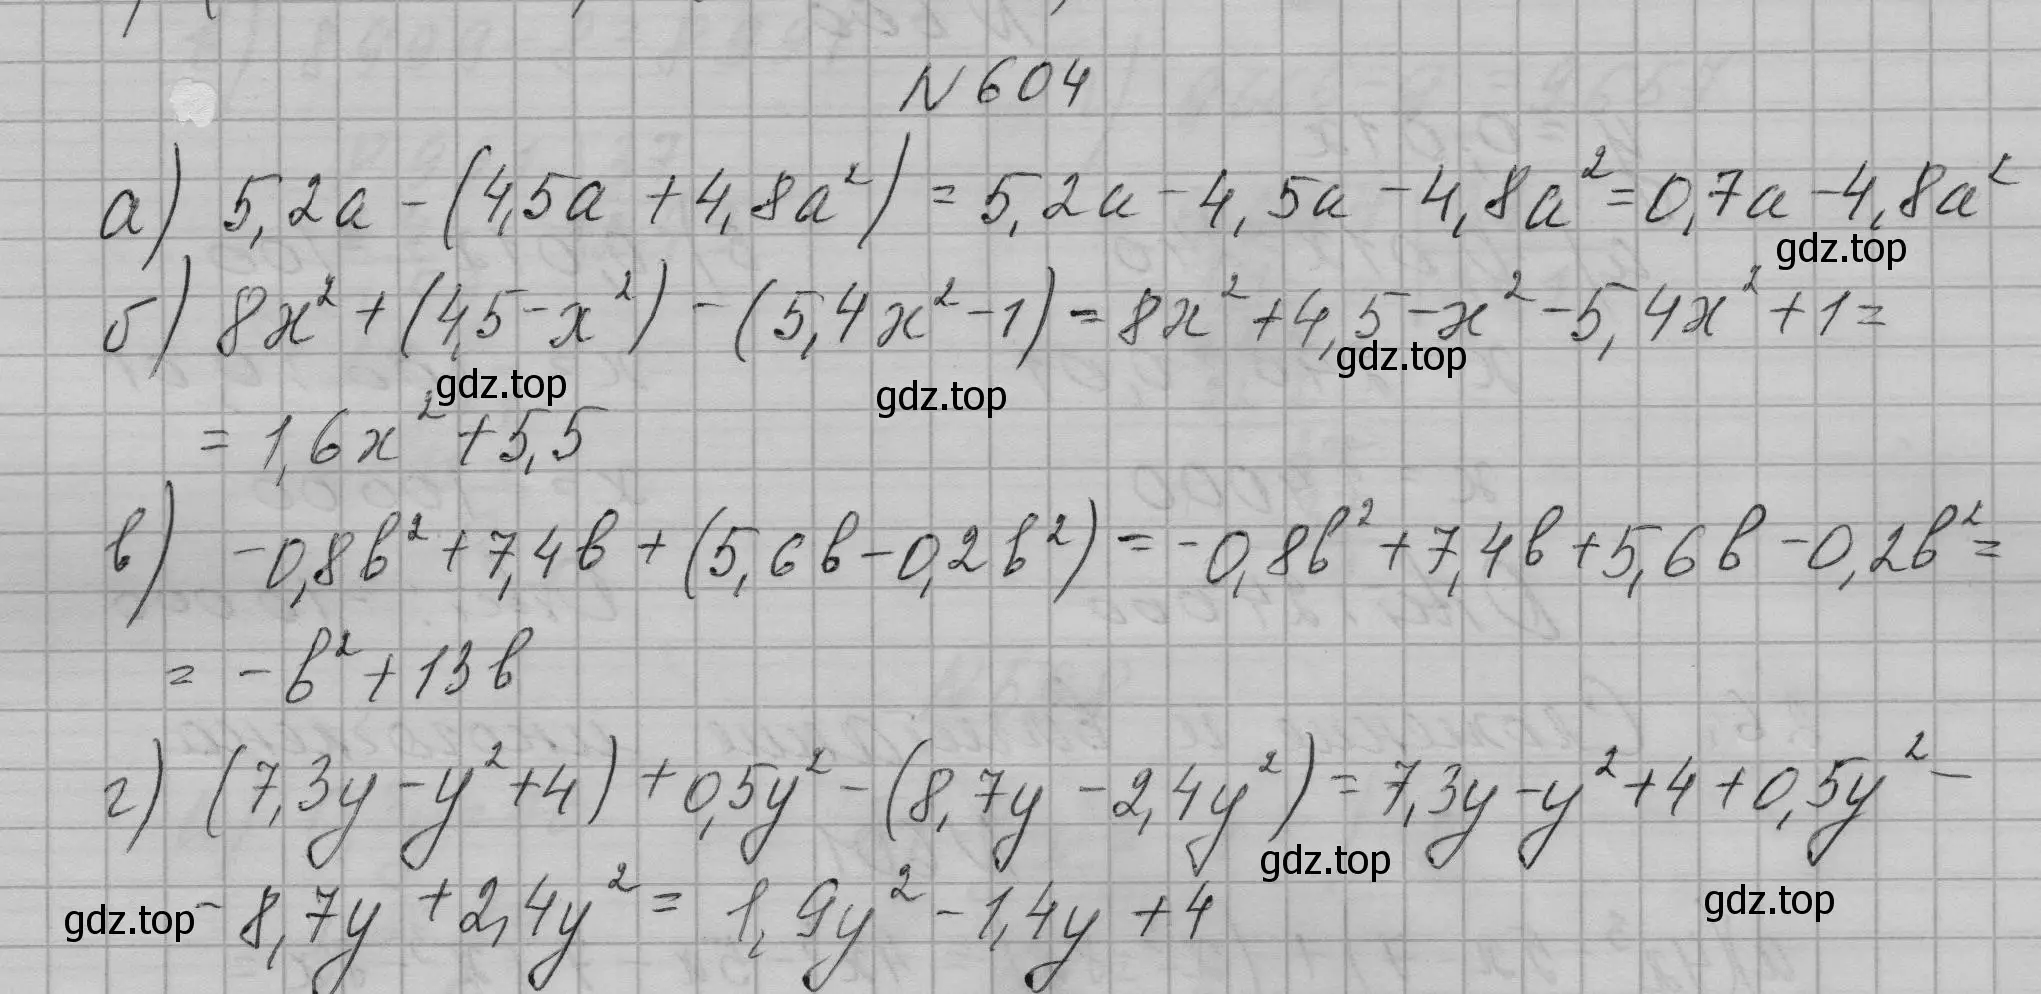 N 604
а) 5,2a - (4,5a + 4,8a²) = 5,2a - 4,5a - 4,8a² = 0,7a - 4,8a²
gdz.top
б) 8x² + (4,5 - x²) - (5,4x² - 1) = 8x² + 4,5 - x² - 5,4x² + 1 =
gdz.top gdz.top gdz.top
= 1,6x² + 5,5
в) -0,8b² + 7,4b + (5,6b - 0,2b²) = -0,8b² + 7,4b + 5,6b - 0,2b² =
= -b² + 13b
г) (7,3y - y² + 4) + 0,5y² - (8,7y - 2,4y²) = 7,3y - y² + 4 + 0,5y² -
gdz.top
- 8,7y + 2,4y² = 1,9y² - 1,4y + 4
gdz.top gdz.top